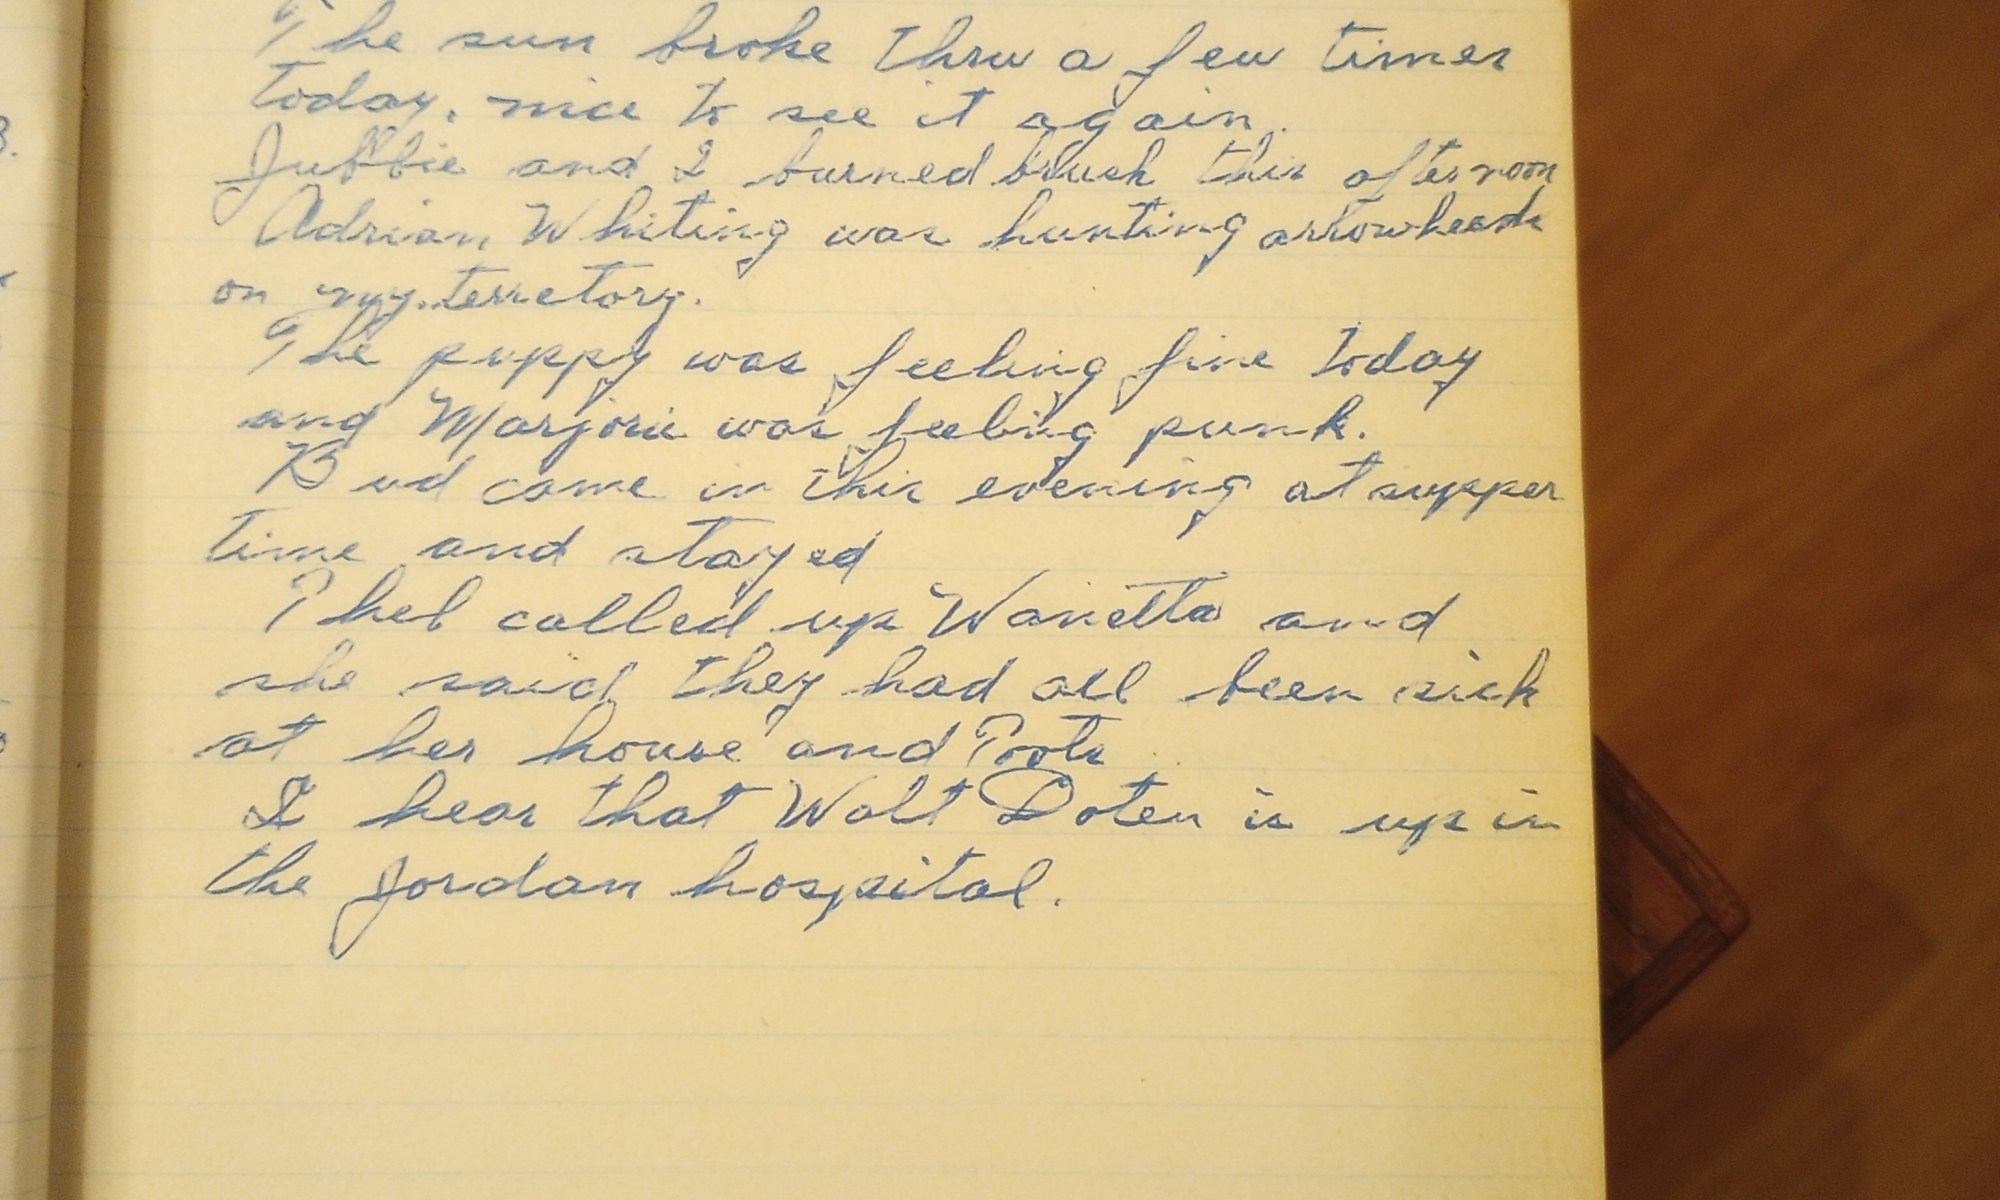 The sun broke thru a few times
today. nice to see it again.
Jubbie and I burned brush this afternoon
Adrian Whiting was hunting arrowheads
on my terretory.
The puppy was feeling fine today
and Marjorie was feeling punk.
Bud came in this evening at supper
time and stayed
Thel called up Wanetta and
she said they had all been sick
at her house and Toots
I hear that Walt Doten is up in
the Jordan hospital.